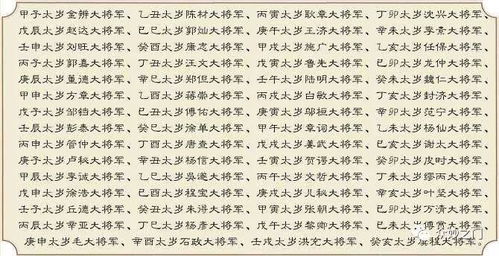 甲子太岁金辨大将军、乙丑太岁陈材大将军、丙寅太岁耿章大将军、丁卯太岁沈兴大将军、
戊辰太岁赵达大将军、己巳太岁郭灿大将军、庚午太岁王济大将军、辛未太岁李素大将军、
壬申太岁刘旺大将军、癸酉太岁康志大将军、甲戌太岁施广大将军、乙亥太岁任保大将军、
丙子太岁郭嘉大将军、丁丑太岁汪文大将军、戊寅太岁鲁先大将军、己卯太岁龙仲大将军、
庚辰太岁董德大将军、辛巳太岁郑但大将军、壬午太岁陆明大将军、癸未太岁魏仁大将军、
甲申太岁方章大将军、乙酉太岁蒋崇大将军、丙戌太岁白敏大将军、丁亥太岁封济大将军、
戊子太岁邹铛大将军、己丑太岁傅佑大将军、庚寅太岁邬桓大将军、辛卯太岁范宁大将军、
壬辰太岁彭泰大将军、癸巳太岁徐单大将军、甲午太岁章词大将军、乙未太岁杨仙大将军、
丙申太岁管仲大将军、丁酉太岁唐查大将军、戊戌太岁姜武大将军、己亥太岁谢太大将军、
庚子太岁卢秘大将军、辛丑太岁杨信大将军、壬寅太岁贺谔大将军、癸卯太岁皮时大将军、
甲辰太岁李诚大将军、乙巳太岁吴遂大将军、丙午太岁文哲大将军、丁未太岁缪丙大将军、
戊申太岁徐浩大将军、己酉太岁程宝大将军、庚戌太岁倪秘大将军、辛亥太岁叶坚大将军、
壬子太岁丘德大将军、癸丑太岁朱得大将军、甲寅太岁张朝大将军、乙卯太岁万清大将军、
丙辰太岁辛亚大将军、丁巳太岁杨彦大将军、戊午太岁黎卿大将军、己未太岁傅党大将军、
庚申太岁毛大将军、辛酉太岁石政大将军、壬戌太岁洪充大将军、癸亥太岁虞程大将军